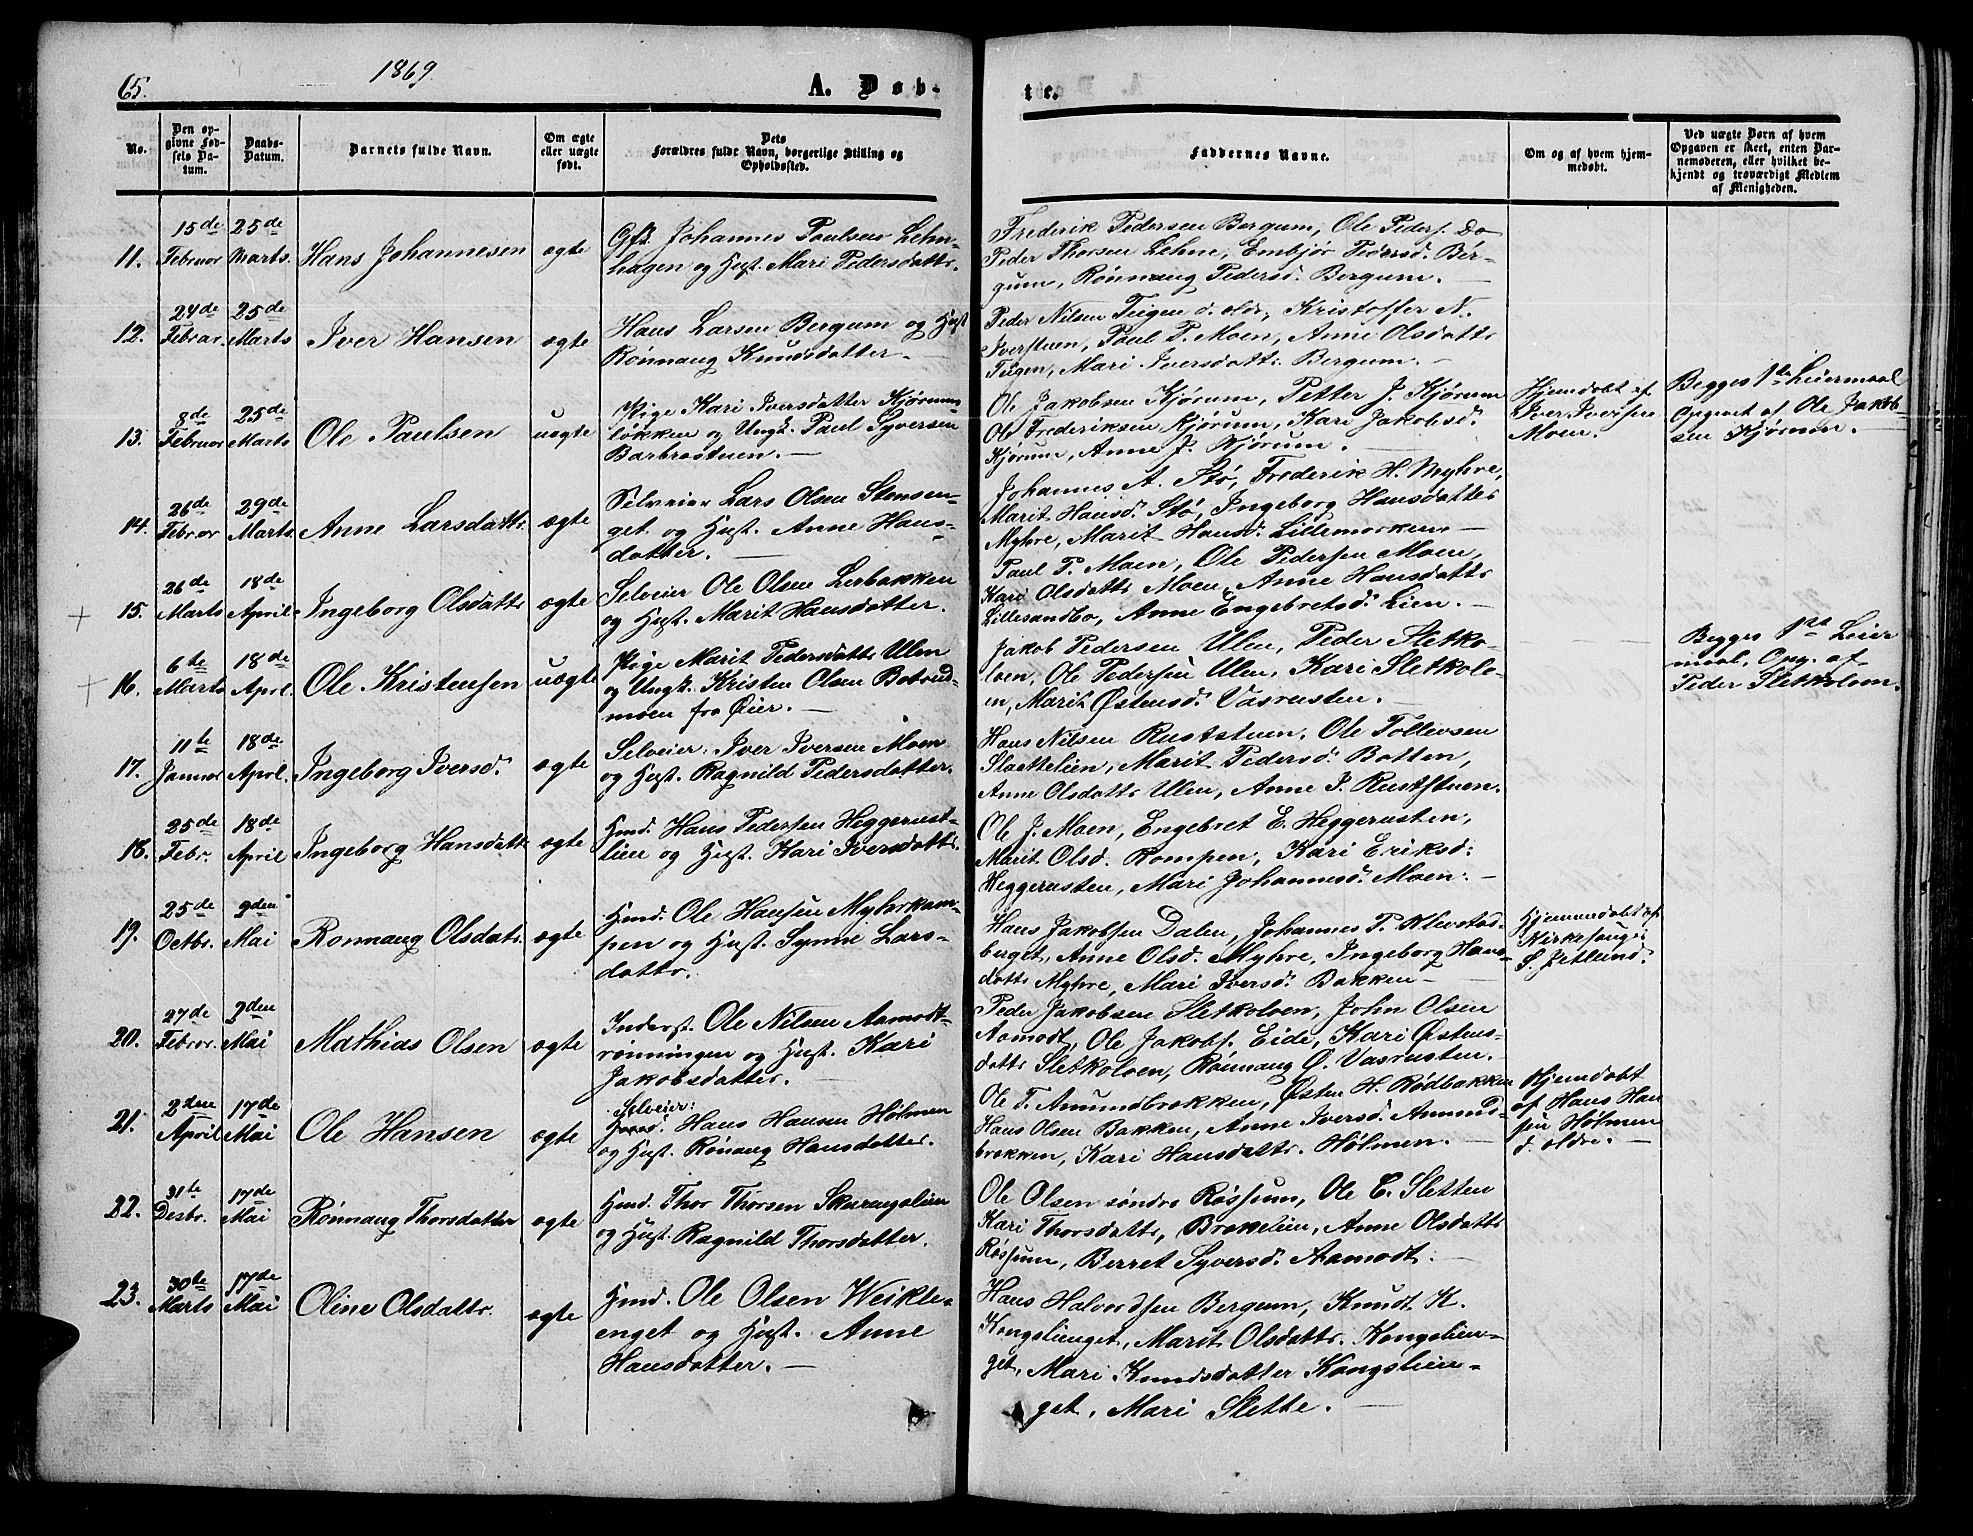 65.
1869.
A. Døb-
te.
No.
Den op-
givne Fød-
sels Da-
tum.
Daabs-
Datum.
Barnets fulde Navn.
Om ægte
eller uægte
født.
Dets
Forældres fulde Navn, borgerlige Stilling og
Opholdssted.
Faddernes Navne.
Om og af hvem hjem-
medøbt.
Ved uægte Børn af hvem
Opgaven er skeet, enten Bar-
nemoderen, eller hvilket be-
kjendt og troværdigt Medlem
af Menigheden.
11.
15de
Februar
25de
Marts.
Hans Johannesen
ægte
Gft. Johannes Paulsen Lehn-
hagen og Hust. Mari Pedersdattr.
Frederik Pedersen Bergum, Ole Peders. Do
Peder Thorsen Lehne, Embjør Tørersd. Ber-
gum, Rønnaug Pedersd. Bergum.
12.
24de
Februar
25de
Marts
Iver Hansen
ægte
Hans Larsen Bergum og Hust
Rønnaug Knudsdatter
Peder Nilsen Teigen d. eldr, Kristoffer N.
Iverstuen, Paul P. Moen, Anne Olsdattr
Teigen, Mari Iversdattr. Bergum.
13.
8de
Februar
25de
Marts
Ole Paulsen
uægte
Pige Kari Iversdatter Kjørum-
løkken og Ungk. Paul Syversen
Barbrostuen.
Ole Jakobsen Kjørum, Petter J. Kjørum
Ole Frederiksen Kjørum, Kari Jakobsd.
Kjørum, Anne J. Kjørum.
Hjemdøbt af
Iver Iversen
Moen.
Begges 1ste Leiermaal
Opgivet af Ole Jakob-
sen Kjørum.
14.
26de
Februar
29de
Marts
Anne Larsdattr.
ægte
Selveier Lars Olsen Stensen-
get og Hust. Anne Hans-
datter.
Johannes A. Stø, Frederik H. Myhre,
Marit Hansd. Stø, Ingeborg Hansdatter
Myhre, Marit Hansd. Lillemorken
15.
26de
Marts
18de
April
Ingeborg Olsdattr
ægte
Selveier Ole Olsen Lerbakken
og Hust. Marit Hansdatter.
Paul P. Moen, Ole Pedersen Moen,
Kari Olsdattr Moen, Anne Hansdattr
Lillesandbo, Anne Engebretsd. Lien.
16.
6te
Marts
18de
April.
Ole Kristensen
uægte
Pige Marit Pedersdattr Ulen
og Ungk. Kristen Olsen Botrud-
moen fra Øier.
Jakob Pedersen Ulen, Peder Sletko-
loen, Ole Pedersen Ulen, Kari Sletkolo-
en, Marit Østensd. Vasrusten.
Begges 1ste Leier
maal, Opg. af
Peder Sletkoloen.
17.
11te
Januar
18de
April.
Ingeborg Iversd.
ægte
Selveier Iver Iversen Moen
og Hust. Ragnild Pedersdatter.
Hans Nilsen Ruststuen, Ole Tollevsen
Slaattelien, Marit Pedersd. Botten,
Anne Olsdattr Ulen, Anne P. Ruststuen.
18.
25de
Febr.
18de
April
Ingeborg Hansdattr
ægte
Hmd. Hans Pedersen Heggerust-
lien og Hust. Kari Iversdattr.
Ole J. Moen, Engebret E. Heggerusten,
Marit Olsd. Rompen, Kari Eriksd.
Heggerusten, Mari Johannesd. Moen.
19.
25de
Octbr.
2den
Mai
Rønnaug Olsdatr.
ægte
Hmd. Ole Hansen Myhrekam-
pen og Hust. Synne Lars-
dattr.
Hans Jakobsen Dalen, Johannes P. Klevstad-
berget, Anne Olsd. Myhre, Ingeborg Hans-
dattr Myhre, Mari Iversd. Bakken
Hjemmedøbt af
Kirkesanger
S. Jetlund.
20.
27de
Februar.
2den
Mai
Mathias Olsen
ægte
Inderst. Ole Nilsen Aamodt-
rønningen og Hust. Kari
Jakobsdatter.
Peder Jakobsen Sletkoloen, John Olsen
Aamodt, Ole Jakobs. Eide, Kari Østens-
dattr Sletkoloen, Rønnaug Ø. Vasrusten.
21.
2den
April
17de
Mai
Ole Hansen
ægte
Selveier:
Hmd. Hans Hansen Holmen
og Hust. Rønaug Hansdatter.
Ole T. Amundbrekken, Østen H. Rødbakken
Hans Olsen Bakken, Anne Iversd. Amund-
brekken, Kari Hansdattr. Holmen.
Hjemdøbt
af Hans Han
sen Holmen
d. eldre.
22.
31te
Desbr.
17de
Mai
Rønnaug Thorsdatter
ægte
Hmd. Thor Thorsen Skurengslien
og Hust. Ragnild Thorsdatter.
Ole Olsen søndre Røssum, Ole E. Sletten
Kari Thorsdattr, Brekelien, Anne Olsdattr
Røssum, Berret Syversd. Aamodt.
23.
30te
Marts
17de
Mai
Oline Olsdattr.
ægte
Hmd. Ole Olsen Weikle-
enget og Hust. Anne
Hansdatter.
Hans Halvordsen Bergum, Knudt K.
Kongslienget, Marit Olsdattr. Kongslien-
get, Mari Knudsdatter Kongslien-
get, Mari Slette.